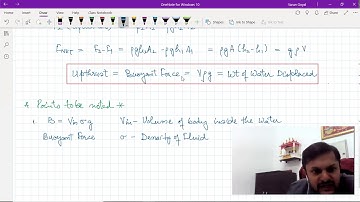 OneNote for Windows 10
Varun Goyal
F_NET = F₂-F₁ = ρgh₂A₂ - ρgh₁A₁ = ρgA (h₂-h₁) = gρV
Upthrust = Buoyant Force = Vρg = Wt of Water Displaced
* Points to be noted *
1. B = Vin σ g Vin - Volume of body inside the Water
Buoyant Force σ - Density of Fluid